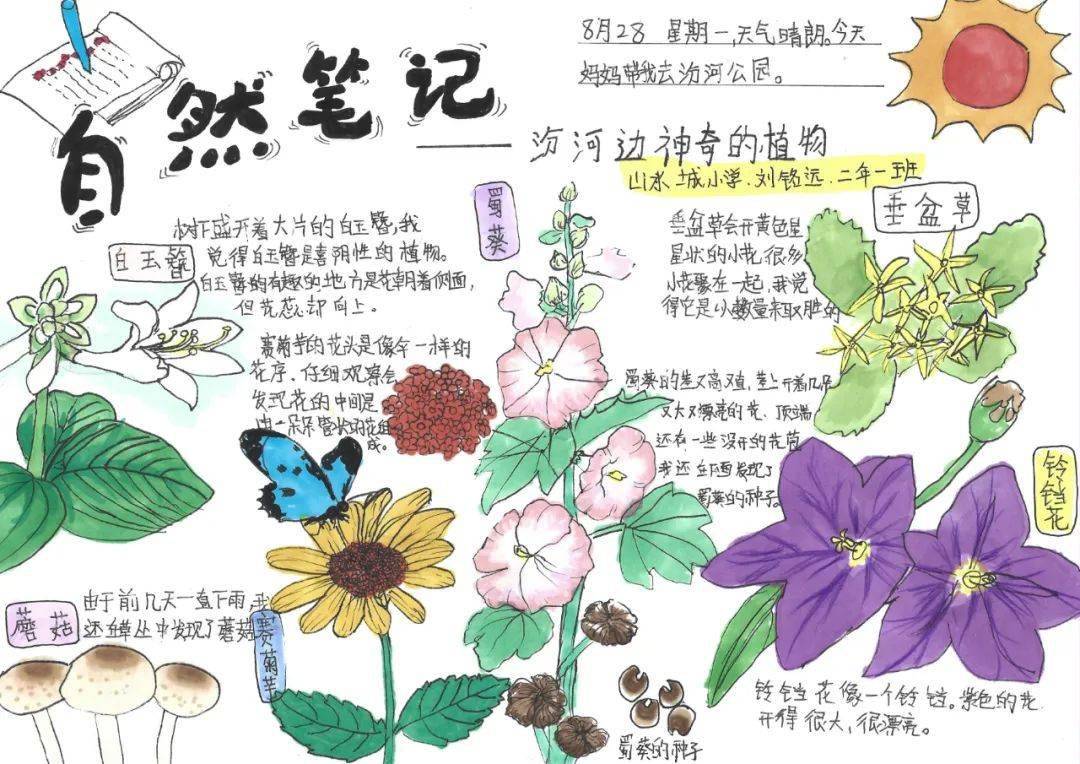 8月28 星期一,天气晴朗。今天
妈妈带我去汾河公园。
自然笔记
——汾河边神奇的植物
山水城小学.刘铭远.二年一班
白玉簪
树下盛开着大片的白玉簪,我
觉得白玉簪是喜阴性的植物。
白玉簪的有趣的地方是花朝着侧面,
但花蕊却向上。
赛菊芋的花头是像伞一样的
花序.仔细观察会
发现花的中间是
由一朵朵管状的花组
成。
蜀葵
垂盆草
垂盆草会开黄色星
星状的小花,很多
小花聚在一起,我觉
得它是小数量来取胜的
蜀葵的茎又高又直,茎上开着几朵
又大又漂亮的花、顶端
还有一些没开的花苞
我还在下面发现了
蜀葵的种子
铃铛花
蘑菇
由于前几天一直下雨,我
还在草丛中发现了蘑菇
赛菊芋
蜀葵的种子
铃铛花像一个铃铛。紫色的花
开得很大,很漂亮。